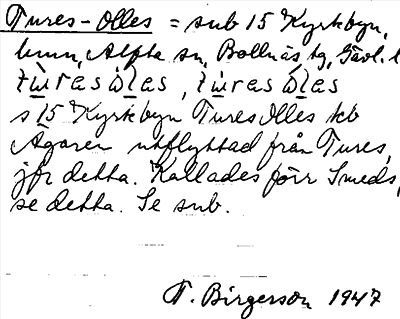 Tures-Olles = sub 15 Kyrkbyn,
hmn, Alfta sn, Bollnäs tg, Gävl. l
tùrasòlas, tùrasòlas
s 15 Kyrkbyn Tures Olles tcb
Ägaren utflyttad från Tures,
jfr detta. Kallades förr Smeds,
se detta. Se sub.
T. Birgerson 1947